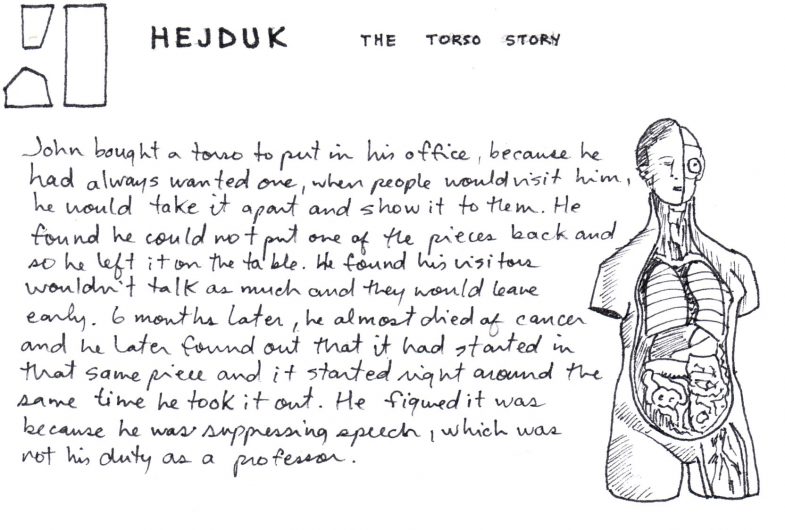 HEJDUK THE TORSO STORY
John bought a torso to put in his office, because he
had always wanted one, when people would visit him,
he would take it apart and show it to them. He
found he could not put one of the pieces back and
so he left it on the table. He found his visitors
wouldn't talk as much and they would leave
early. 6 months later, he almost died of cancer
and he later found out that it had started in
that same piece and it started right around the
same time he took it out. He figured it was
because he was suppressing speech, which was
not his duty as a professor.